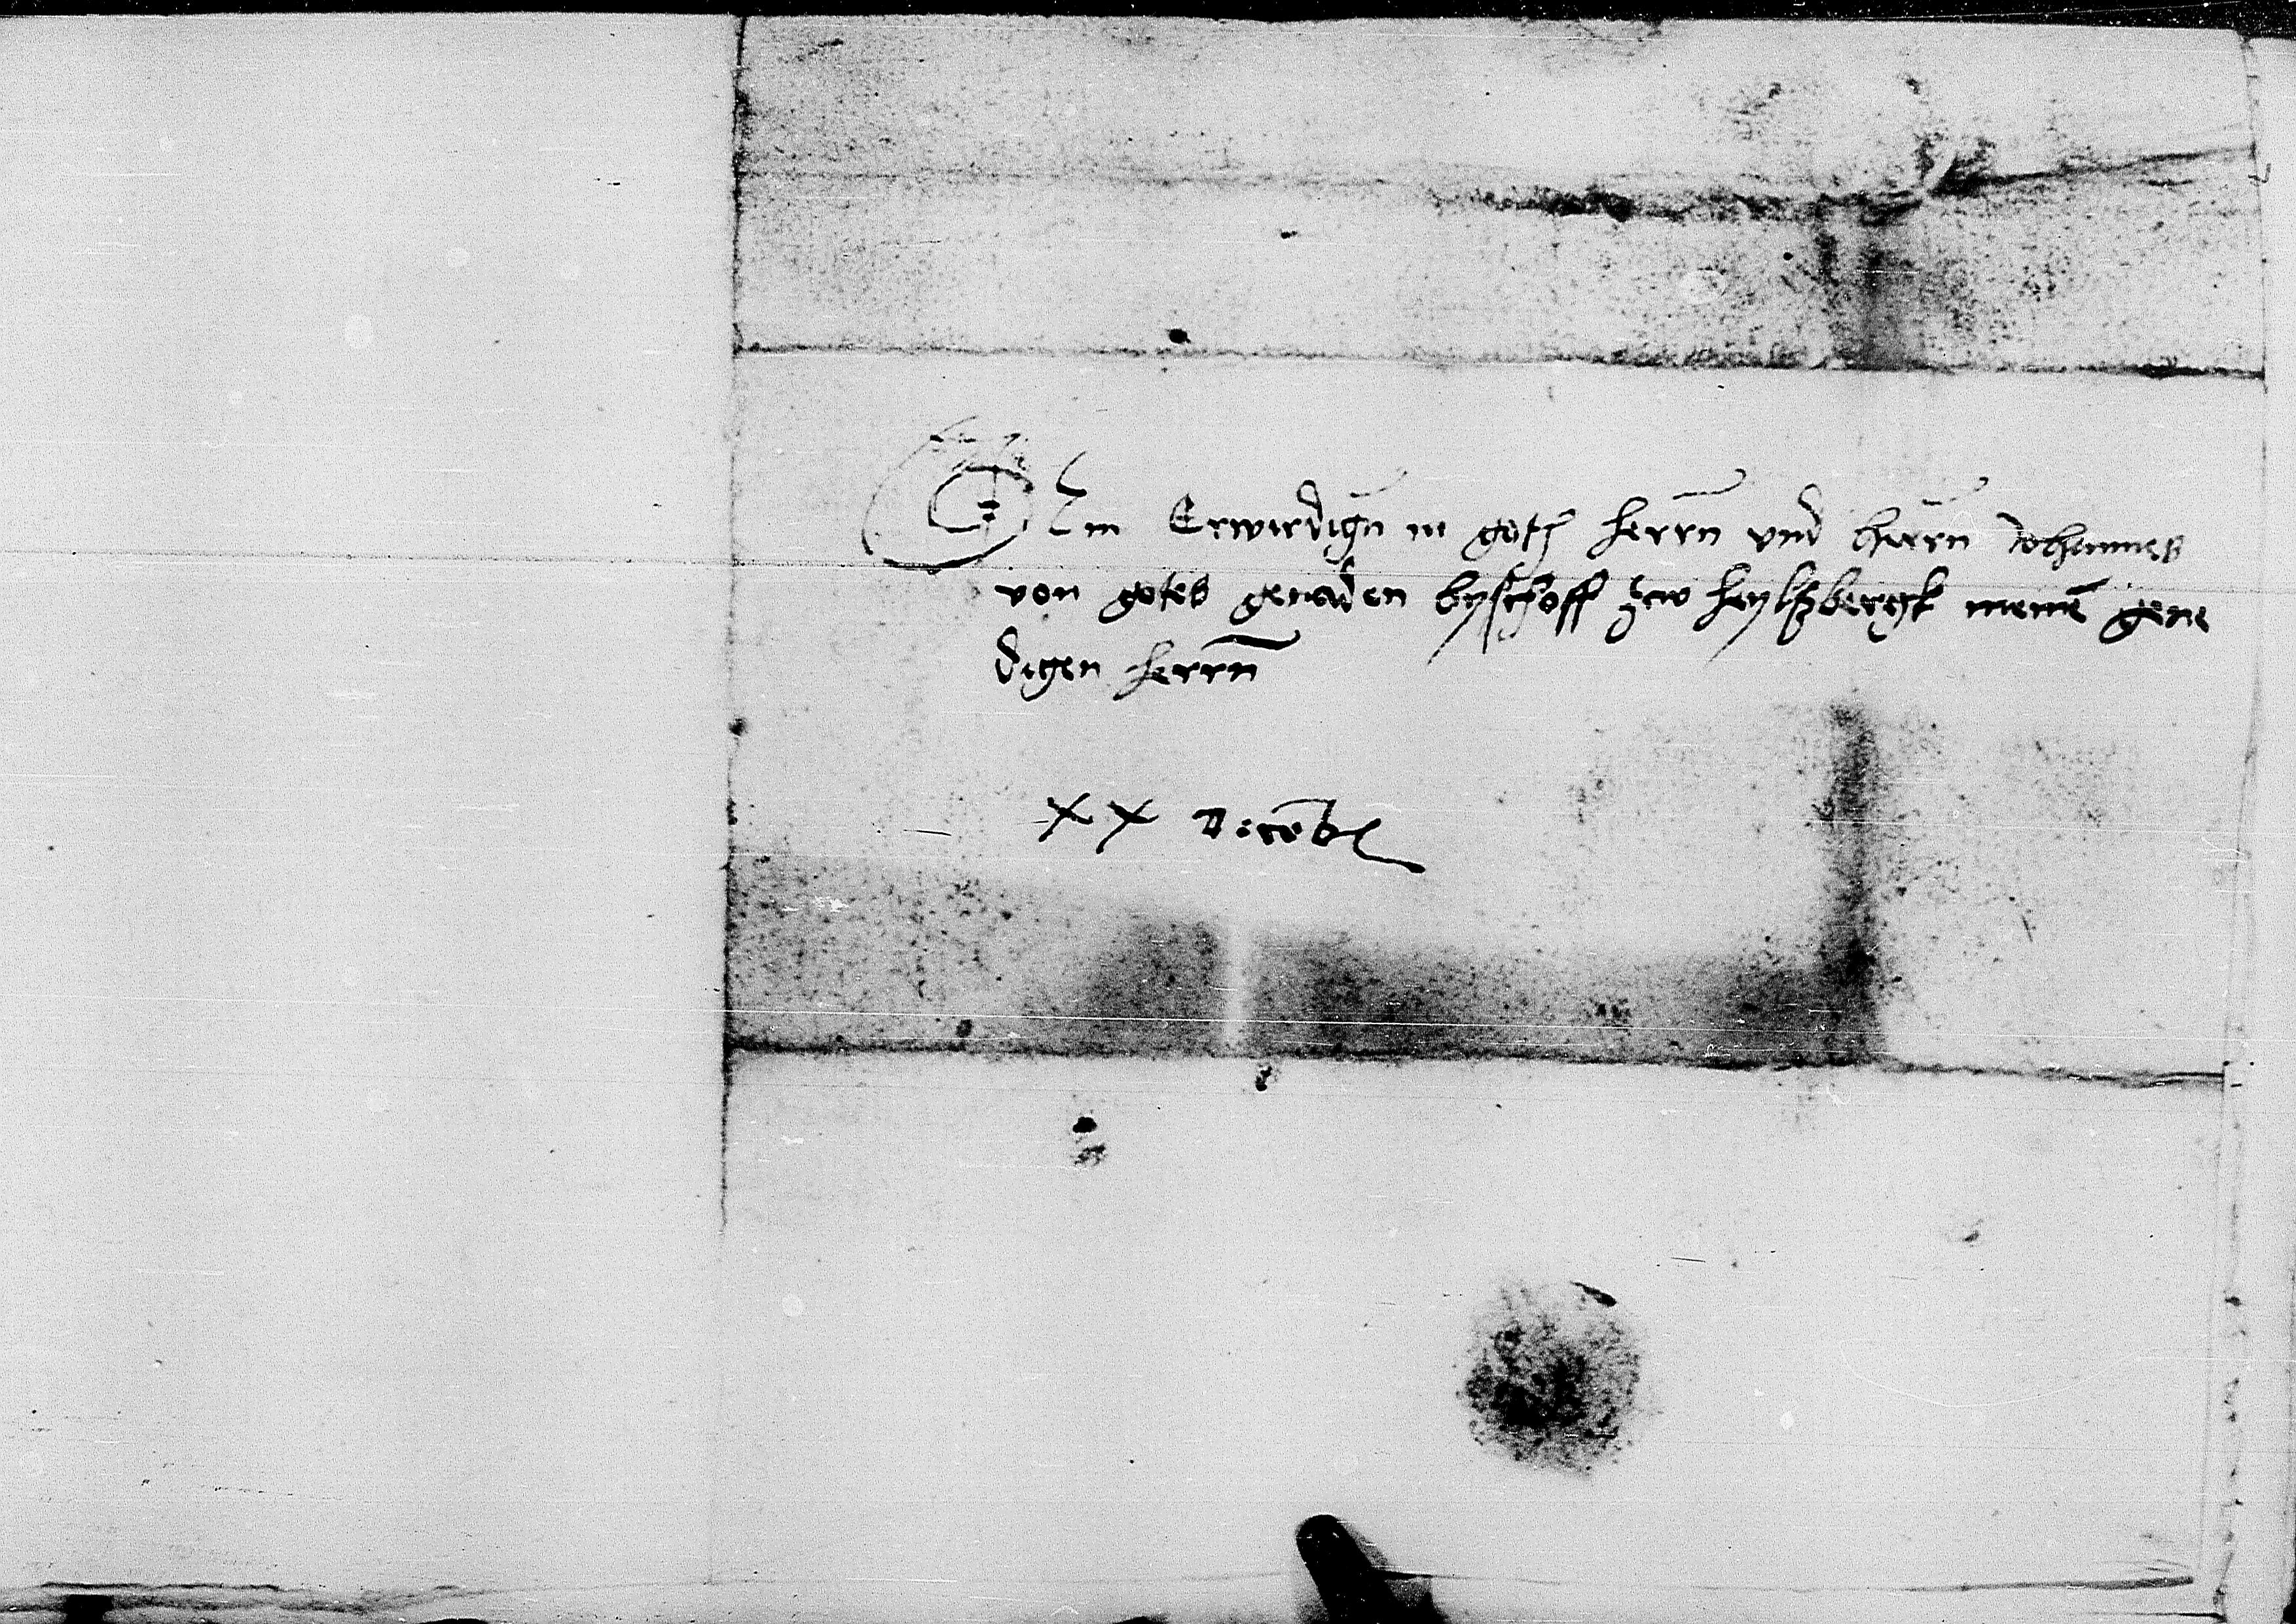 Dem Erwirdign in gote herrn vnd herrn Johannes
von gotes genaden byschoff zcw heylsbergk meinē gene
digen herrn
xx Decēb